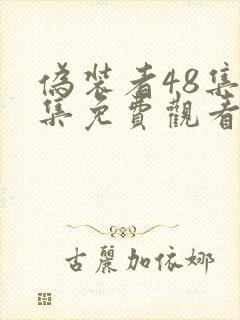 偽装者48集
集免費觀看
古麗加依娜